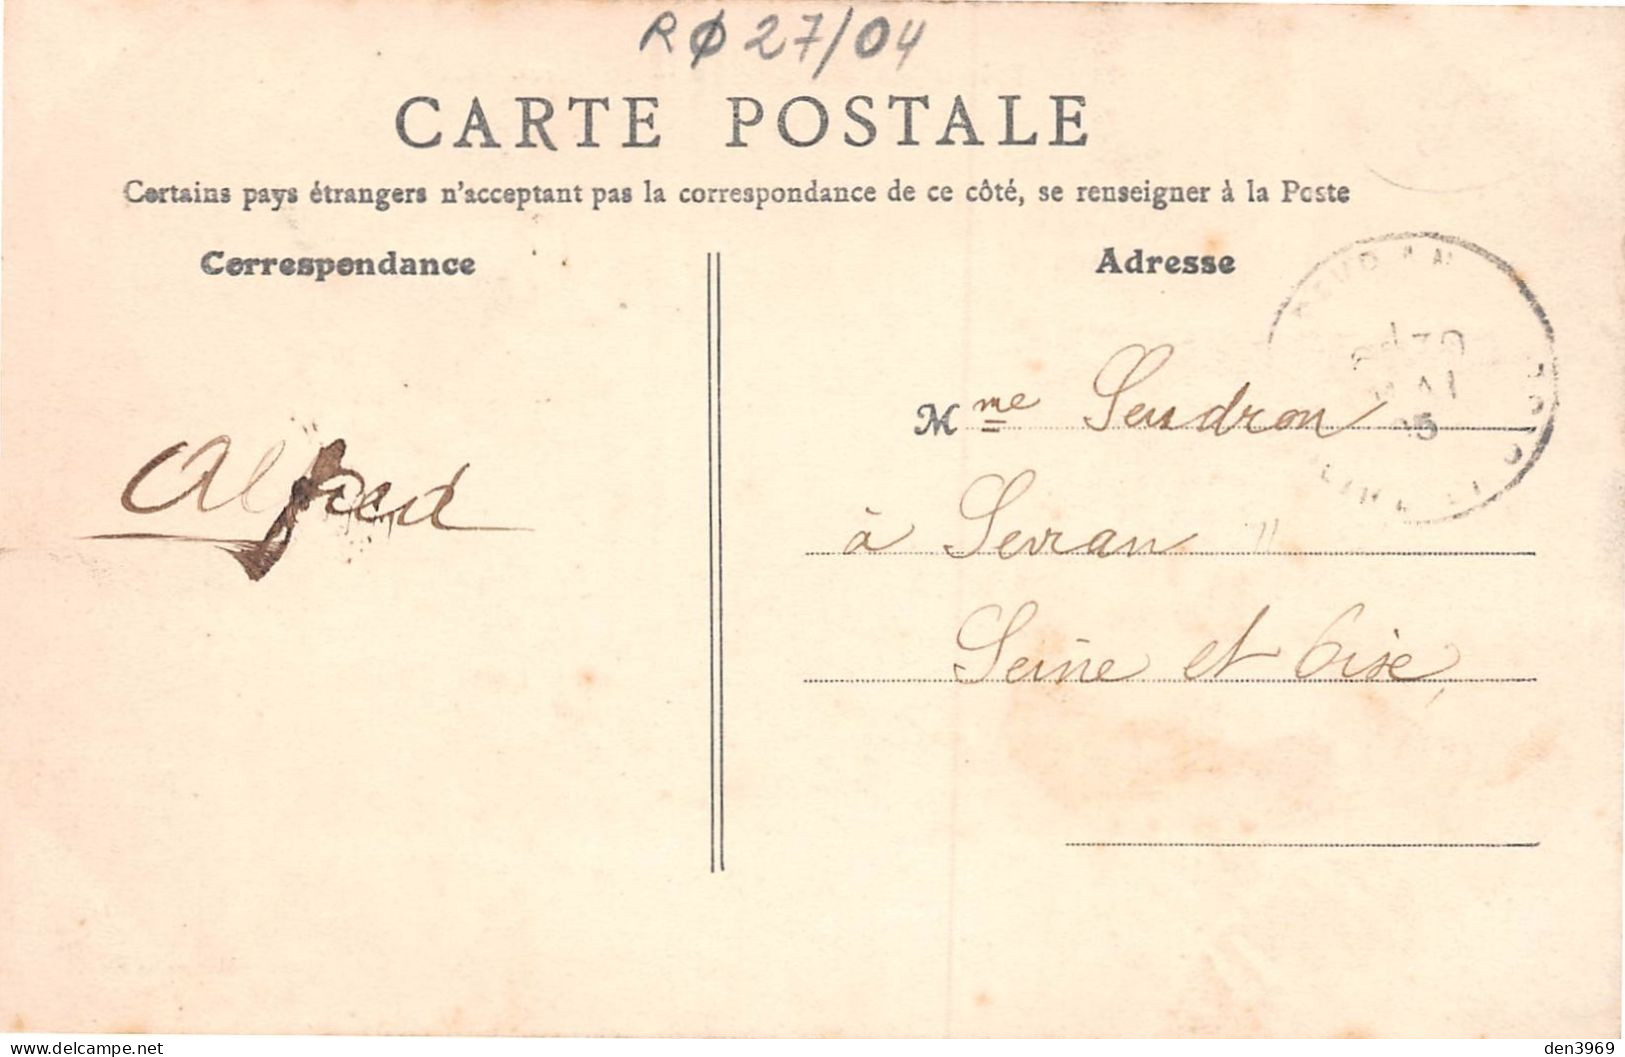 RØ 27/04
CARTE POSTALE
Certains pays étrangers n'acceptant pas la correspondance de ce côté, se renseigner à la Poste
Correspondance
Adresse
Alfred
Mme Sendron
à Sevran
Seine et Oise
den3969